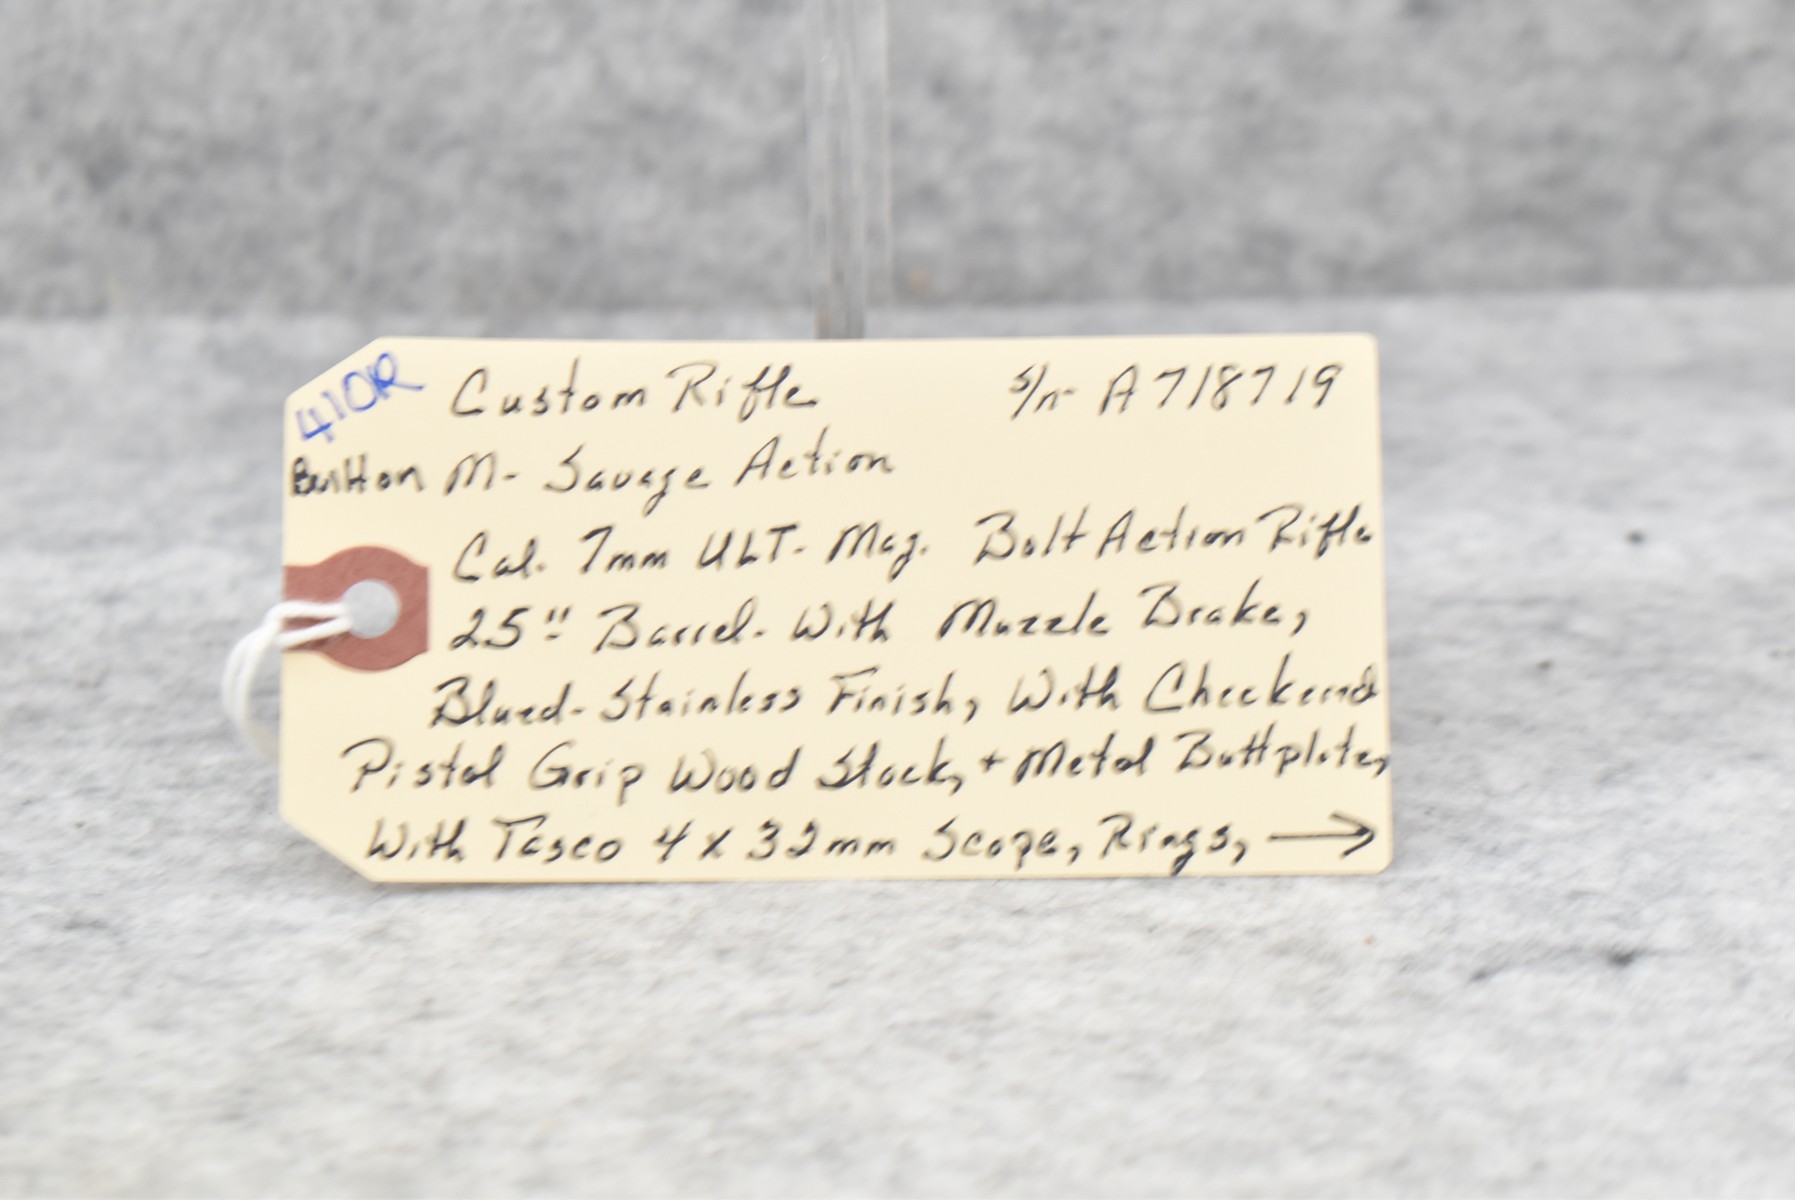 410R
Custom Rifle s/n- A718719
M- Savage Action
Cal. 7mm ULT- Mag. Bolt Action Rifle
25" Barrel- With Muzzle Brake,
Blued-Stainless Finish, With Checkered
Pistol Grip Wood Stock, + Metal Buttplate,
With Tasco 4 x 32mm Scope, Rings, →